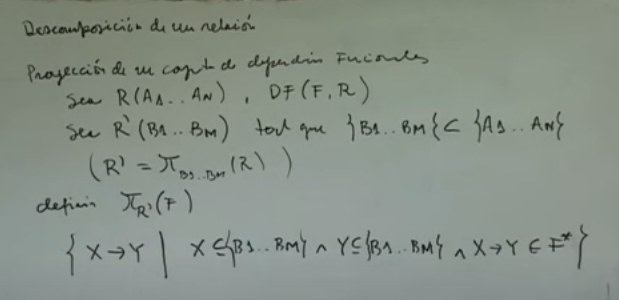 Descomposición de un relación
Proyección de un conjunto de dependencias Funcionales
Sea R(A1..AN), DF(F,R)
Sea R'(B1..BM) tal que {B1..BM} ⊂ {A1..AN}
(R' = π_{B1..BM}(R))
definir π_{R'}(F)
{ X→Y | X ⊆ {B1..BM} ∧ Y ⊆ {B1..BM} ∧ X→Y ∈ F* }